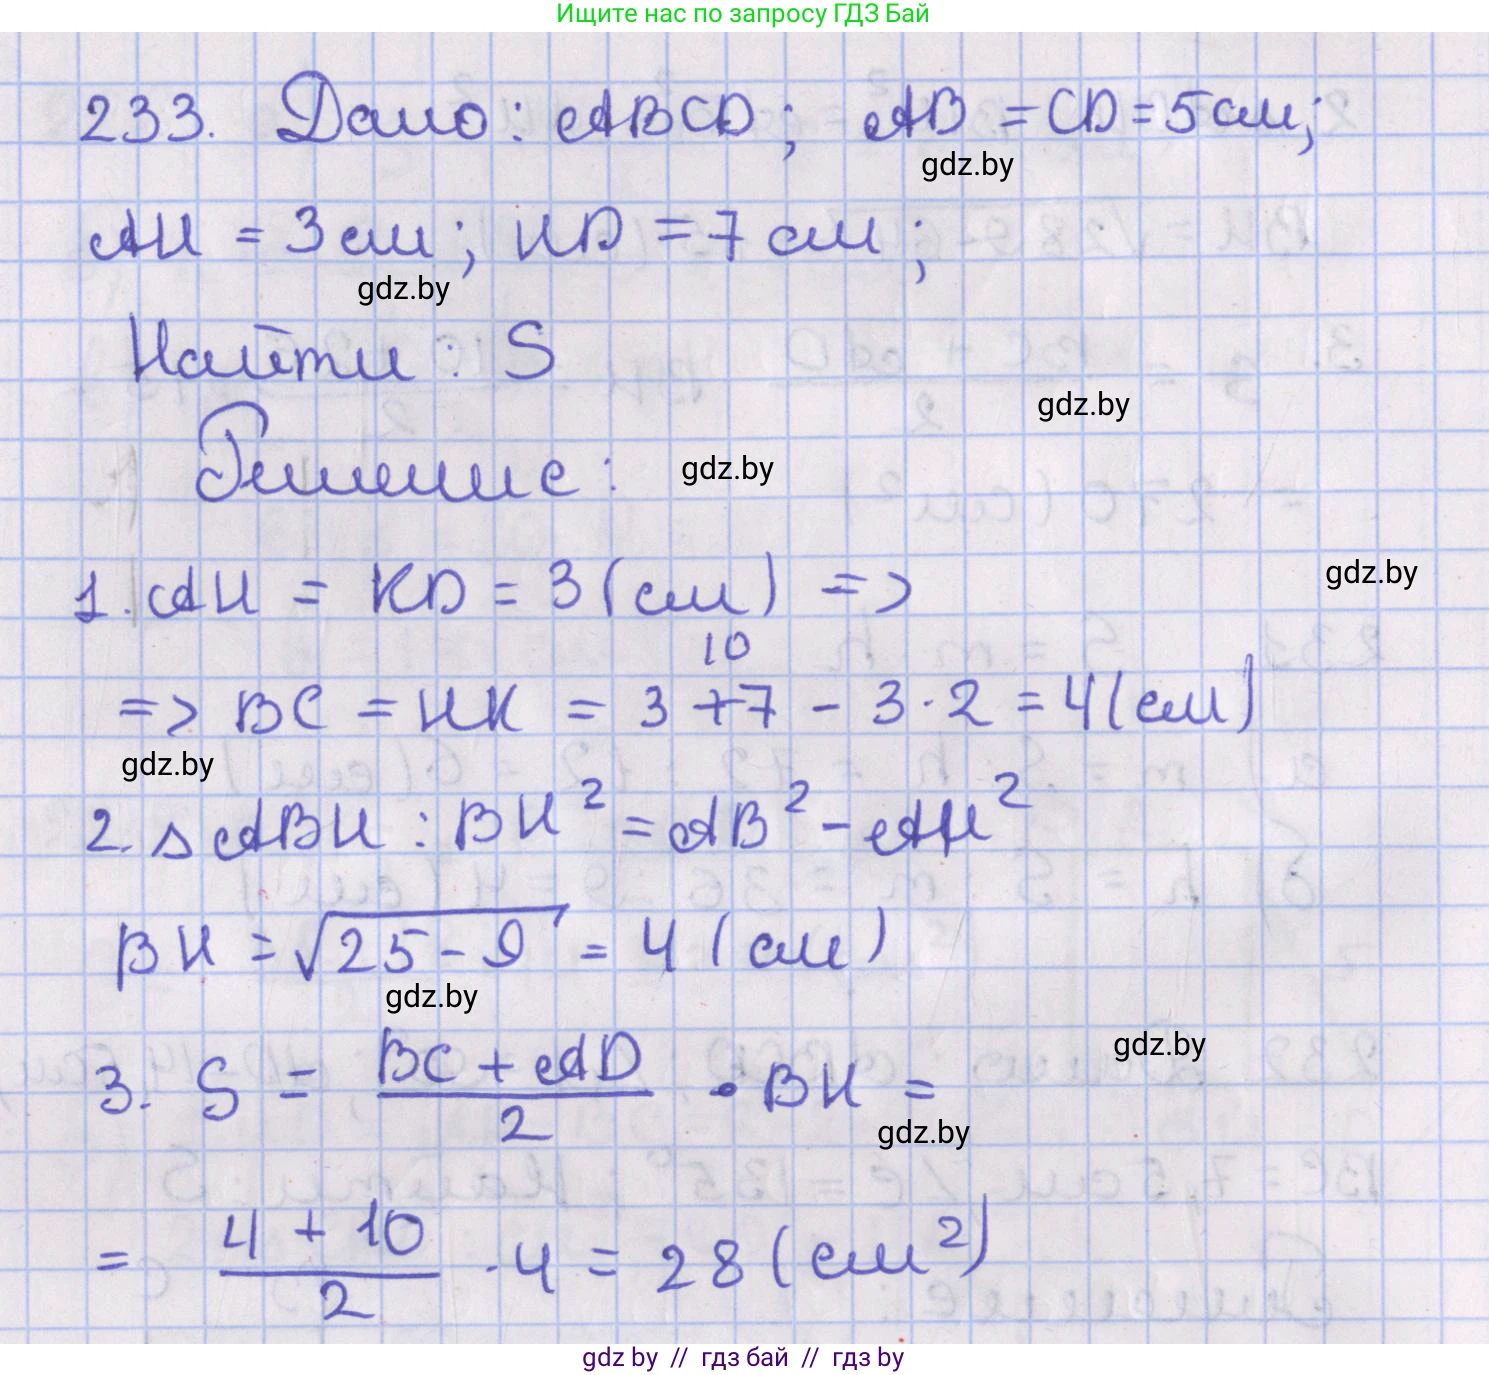 Ищите нас по запросу ГДЗ Бай
233. Дано: ABCD; AB = CD = 5см;
gdz.by
AH = 3см; HD = 7см;
gdz.by
Найти: S
gdz.by
Решение:
gdz.by
1. AH = KD = 3(см) =>
gdz.by
10
=> BC = HK = 3+7 - 3·2 = 4(см)
gdz.by
2. △ABH: BH² = AB² - AH²
BH = √25-9 = 4(см)
gdz.by
gdz.by
3. S = BC + AD / 2 · BH =
gdz.by
= 4 + 10 / 2 · 4 = 28(см²)
gdz by // гдз бай // гдз by